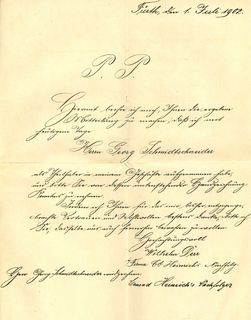 Fürth, den 1. Juli 1902.
P. P.
Hiermit beehre ich mich, Ihnen die ergebene
Mitteilung zu machen, daß ich mit
heutigem Tage
Herrn Georg Schmidtschneider
als Theilhaber in meinem Geschäfte aufgenommen habe,
und bitte Sie von dessen untenstehender Handzeichnung
Kenntnis zu nehmen.
Indem ich Ihnen für das mir bisher entgegenge-
brachte Vertrauen und Wohlwollen bestens danke, bitte ich
Sie, dasselbe uns auch fernerhin bewahren zu wollen.
Hochachtungsvoll
Wilhelm Derr
Firma: Cd. Heinrich's Nachfolg.
Herr Georg Schmidtschneider wird zeichnen:
Conrad Heinrich's Nachfolger